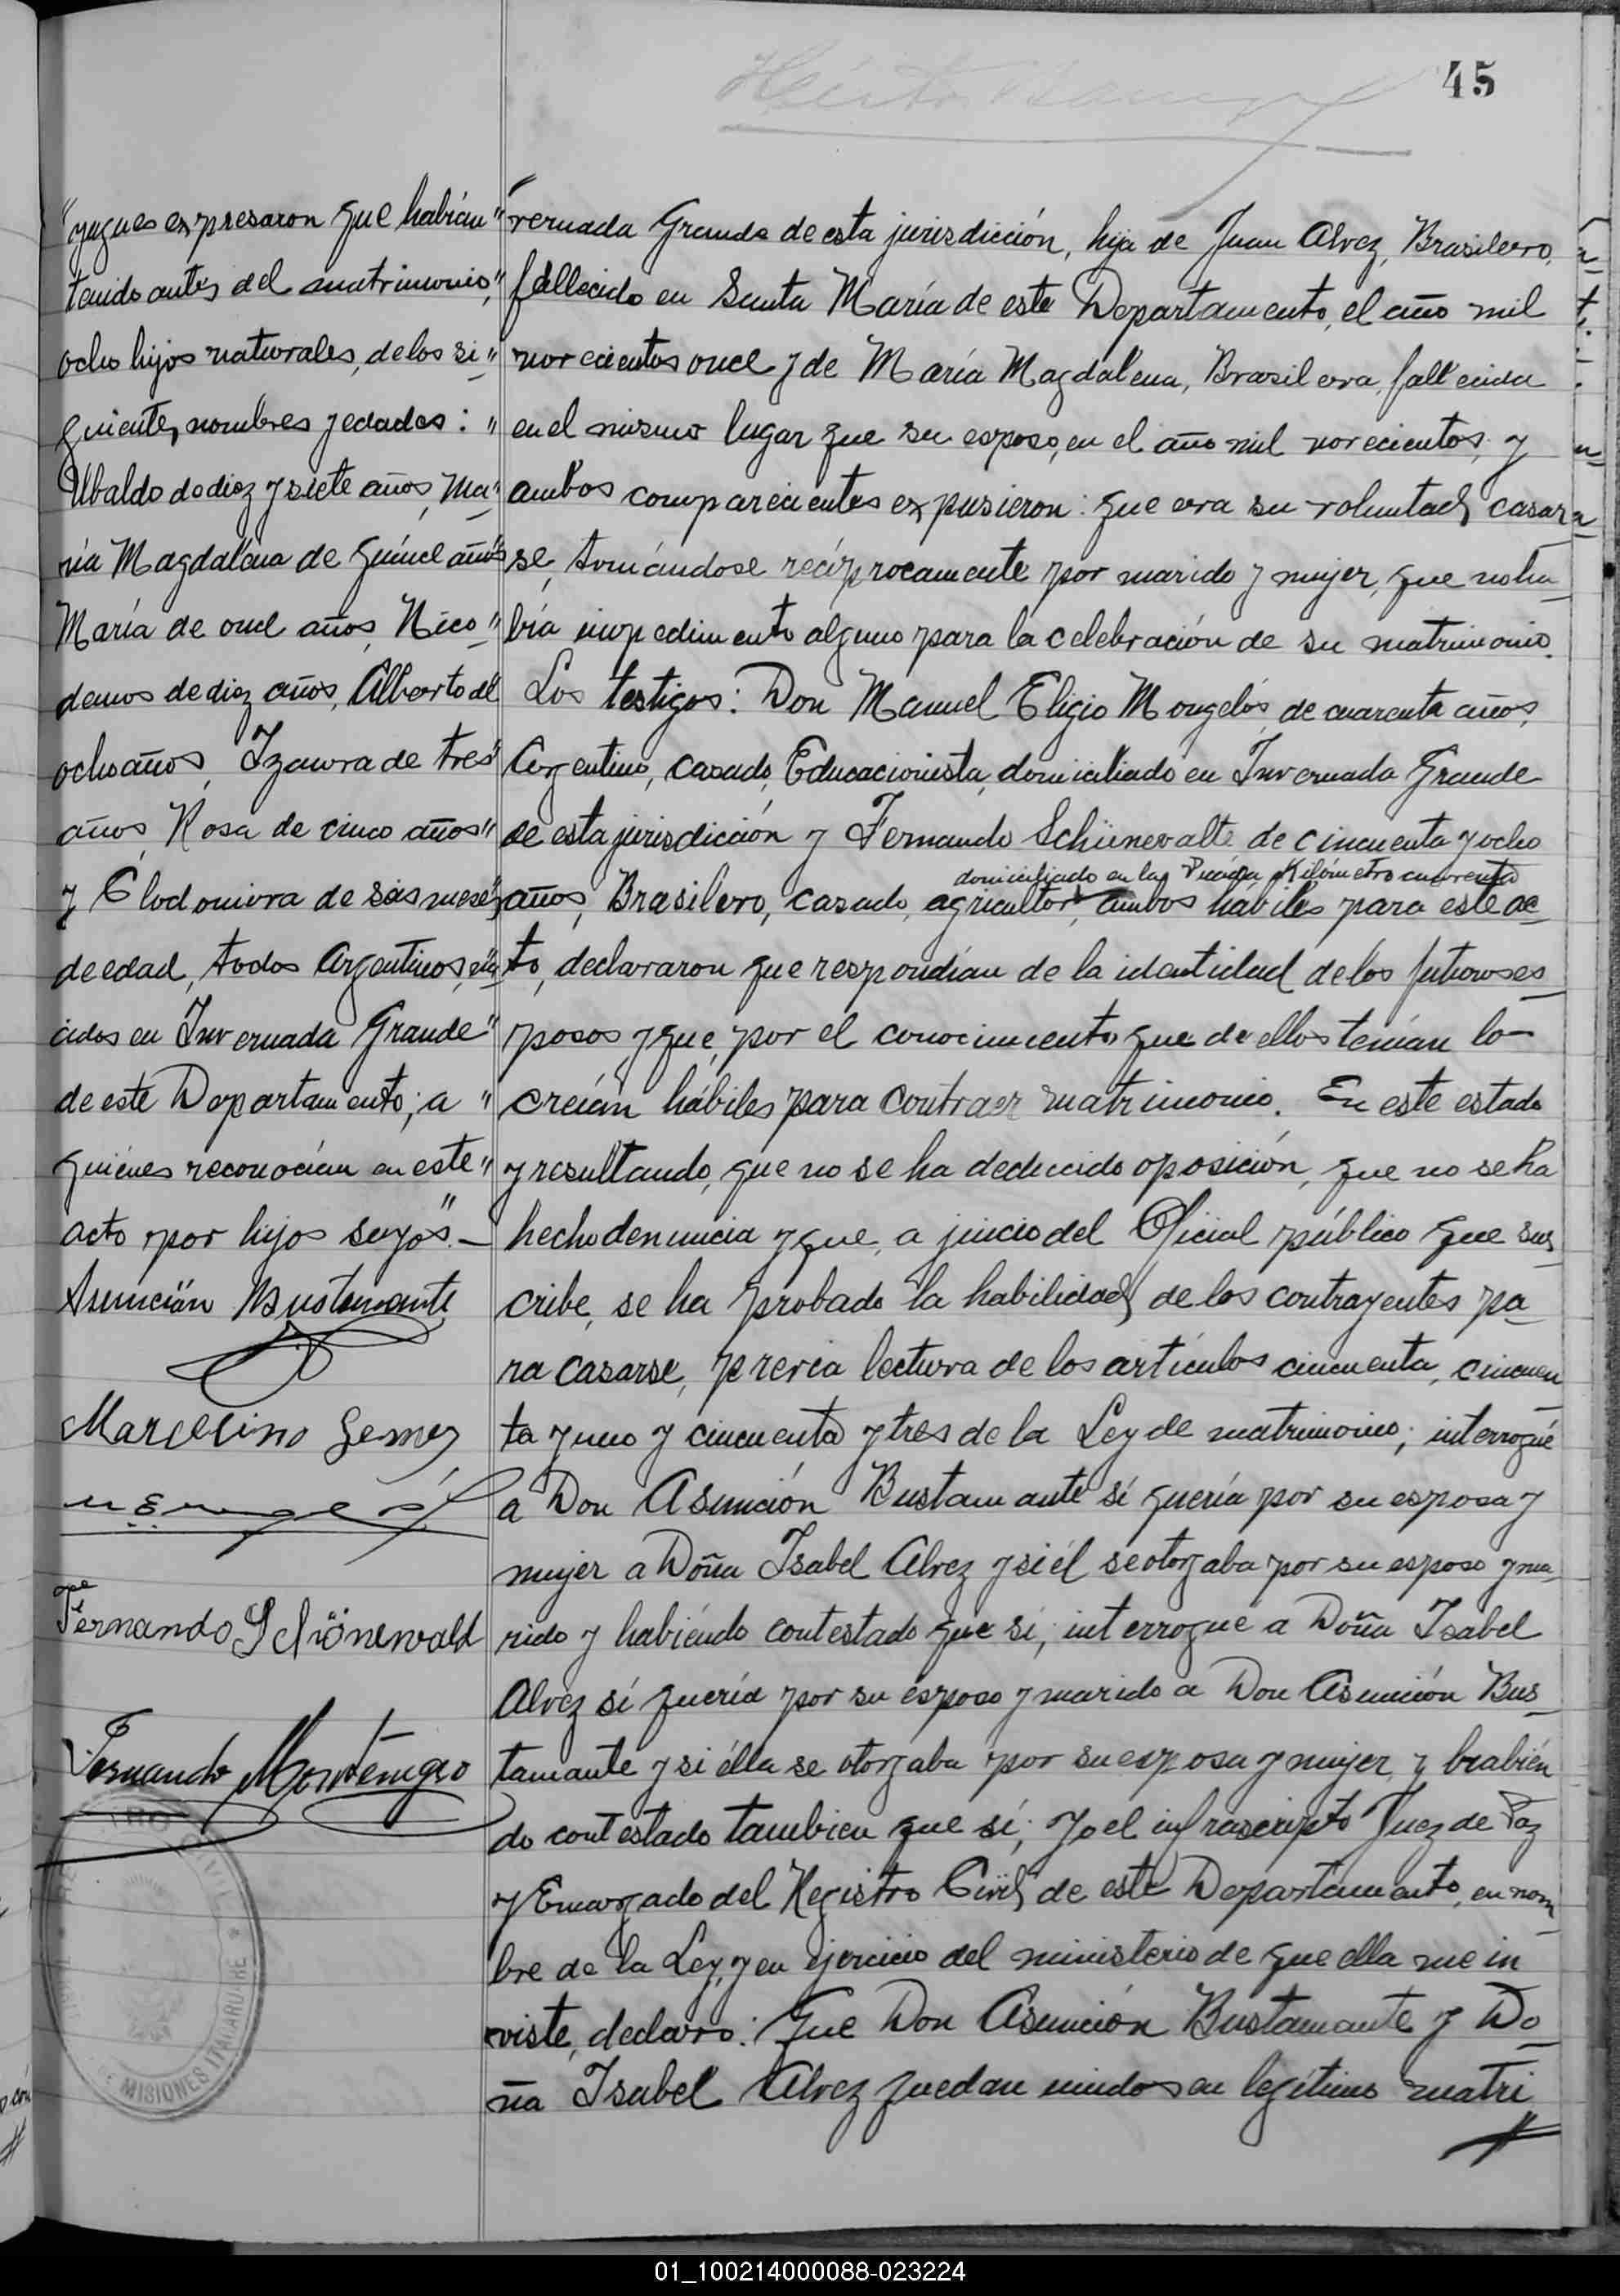 45
"yugues expresaron que habian"
tenido antes del matrimonio,"
ocho hijos naturales, de los si"
guientes nombres y edades: "
Ubaldo de diez y siete años, Ma"
ría Magdalena de quince años"
María de once años, Nico"
demos de diez años, Alberto de"
ocho años, Izaura de tres"
años, Rosa de cinco años"
y Clodomira de seis meses"
de edad, todos Argentinos, na"
cidos en Invernada Grande"
de este Departamento; a "
quiénes reconocían en este"
acto por hijos suyos". —
Asunción Bustamante
Marcelino Gemez
Fernando Schönewald
Fernando Montenegro
REGISTRO CIVIL
MISIONES ITACARURE
vernada Grande de esta jurisdicción, hija de Juan Alvez, Brasilero,
fallecido en Santa María de este Departamento, el año mil
novecientos once y de María Magdalena, Brasilera, fallecida
en el mismo lugar que su esposo, en el año mil novecientos; y
ambos comparecientes expusieron: que era su voluntad casar
se, tomándose recíprocamente por marido y mujer, que no ha
bía impedimento alguno para la celebración de su matrimonio.
Los testigos: Don Manuel Eligio Mongelós, de cuarenta años,
Argentino, casado, Educacionista, domiciliado en Invernada Grande
de esta jurisdicción y Fernando Schünevalte de cincuenta y ocho
domiciliado en la Picada Kilómetro cuarenta
años, Brasilero, casado, agricultor, ambos hábiles para este ac
to, declararon que respondían de la identidad de los futuros es
posos y que, por el conocimiento que de ellos tenían lo
creían hábiles para contraer matrimonio. En este estado
y resultando, que no se ha deducido oposición, que no se ha
hecho denuncia y que, a juicio del Oficial público que sus
cribe, se ha probado la habilidad de los contrayentes pa
ra casarse, previa lectura de los artículos cincuenta, cincuen
ta y uno y cincuenta y tres de la Ley de matrimonio; interrogué
a Don Asunción Bustamante sí quería por su esposa y
mujer a Doña Isabel Alvez y si él se otorgaba por su esposo y ma
rido y habiéndo contestado que sí; interrogué a Doña Isabel
Alvez sí quería por su esposo y marido a Don Asunción Bus
tamante y si élla se otorgaba por su esposa y mujer y habién
do contestado tambien que sí; Yo el infrascripto Juez de Paz
y Encargado del Registro Civil de este Departamento, en nom
bre de la Ley, y en ejercicio del ministerio de que ella me in
viste, declaro: Que Don Asunción Bustamante y Do
ña Isabel Alvez quedan unidos en legítimo matri
01_100214000088-023224